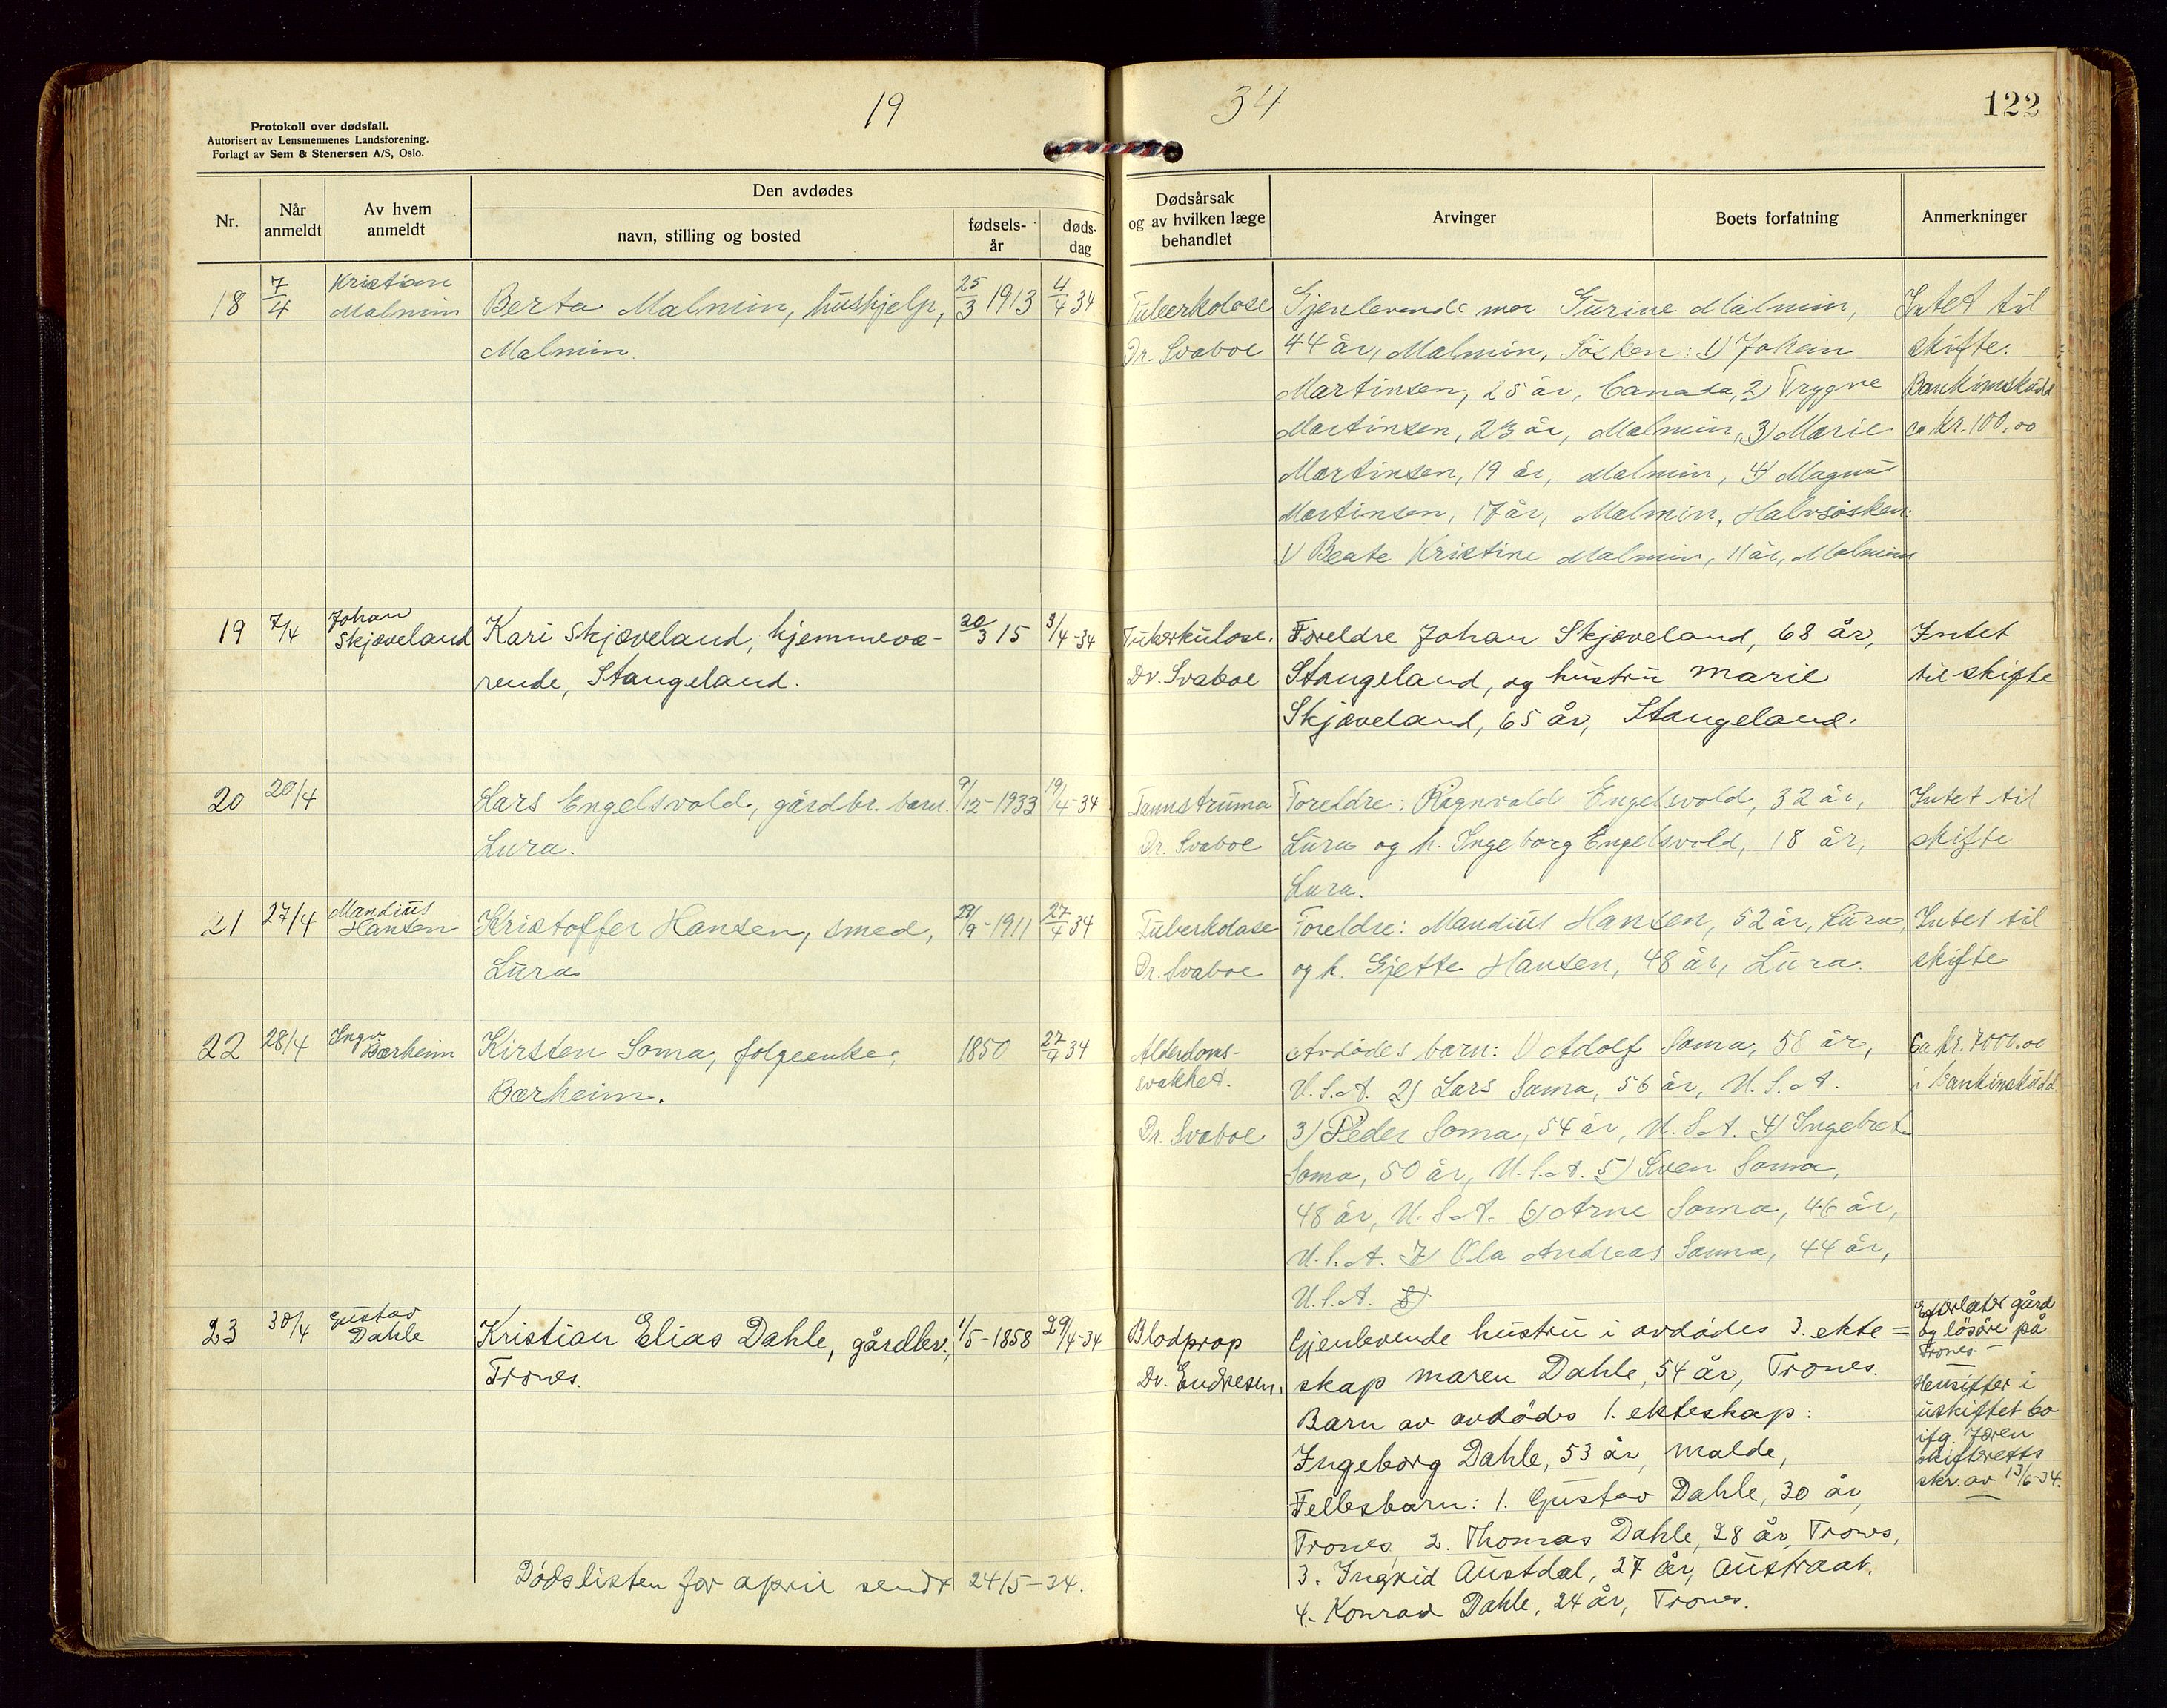 19
34
122
Protokoll over dødsfall.
Autorisert av Lensmennenes Landsforening.
Forlagt av Sem & Stenersen A/S, Oslo.
Nr.
Når anmeldt
Av hvem anmeldt
Den avdødes
navn, stilling og bosted
fødsels-år
døds-dag
Dødsårsak og av hvilken læge behandlet
Arvinger
Boets forfatning
Anmerkninger
18
7/4
Kristian
Malmin
Berta Malmin, hushjelp,
Malmin.
25/3 1913
4/4 34
Tuberkolose
Dr. Svaboe
Gjenlevende mor Turine Malmin,
44 år, Malmin, Søsken: 1)
Martinsen, 25 år, Canada, 2) Trygve
Martinsen, 23 år, Malmin, 3) Marie
Martinsen, 19 år, Malmin, 4) Magnus
Martinsen, 17 år, Malmin, Halvsøsken:
1) Beate Kristine Malmin, 11 år, Malmin
Intet til
skifte.
Bankinskudd
ca kr. 100,00
19
7/4
Johan
Skjæveland
Kari Skjæveland, hjemmevæ-
rende, Stangeland.
20/3 15
3/4-34
Tuberkulose.
Dr. Svaboe
Foreldre Johan Skjæveland, 68 år,
Stangeland, og hustru Marie
Skjæveland, 65 år, Stangeland.
Intet
til skifte
20
20/4
Lars Engelsvold, gårdbr. barn.
Lura.
9/12-1933
19/4-34
Dr. Svaboe
Foreldre: Ragnvald Engelsvold, 32 år,
Lura og h. Ingeborg Engelsvold, 18 år,
Lura.
Intet til
skifte
21
27/4
Mandius
Hansen
Kristoffer Hansen, smed,
Lura
29/9-1911
27/4 34
Tuberkolose
Dr. Svaboe
Foreldre: Mandius Hansen, 52 år, Lura
og h. Gjette Hansen, 48 år, Lura.
Intet til
skifte
22
28/4
Ingv.
Bærheim
Kirsten Soma, følgeenke,
Bærheim.
1850
27/4 34
Alderdoms-
svakhet.
Dr. Svaboe
Avdødes barn: 1) Adolf Soma, 58 år,
U.S.A. 2) Lars Soma, 56 år, U.S.A.
3) Peder Soma, 54 år, U.S.A. 4) Ingebret
Soma, 50 år, U.S.A. 5) Sven Soma,
48 år, U.S.A. 6) Arne Soma, 46 år,
U.S.A. 7) Ola Andreas Soma, 44 år,
U.S.A. 8)
Ca kr.
i bankinskudd
23
30/4
Gustav
Dahle
Kristian Elias Dahle, gårdbr.,
Trones.
1/5-1858
29/4-34
Blodprop
Dr. Endresen.
Gjenlevende hustru i avdødes 3. ekte=
skap Maren Dahle, 54 år, Trones.
Barn av avdødes 1. ekteskap:
Ingeborg Dahle, 53 år, Malde,
Fellesbarn: 1. Gustav Dahle, 30 år,
Trones, 2. Thomas Dahle, 28 år, Trones,
3. Ingrid Austdal, 27 år, Austraat.
4. Konrad Dahle, 24 år, Trones.
Efterlater gård
og løsøre på
Trones.—
Hensitter i
uskiftet bo
ifg. Jæren
skifteretts
skr. av 13/6-34.
Dødslisten for april sendt 24/5-34.